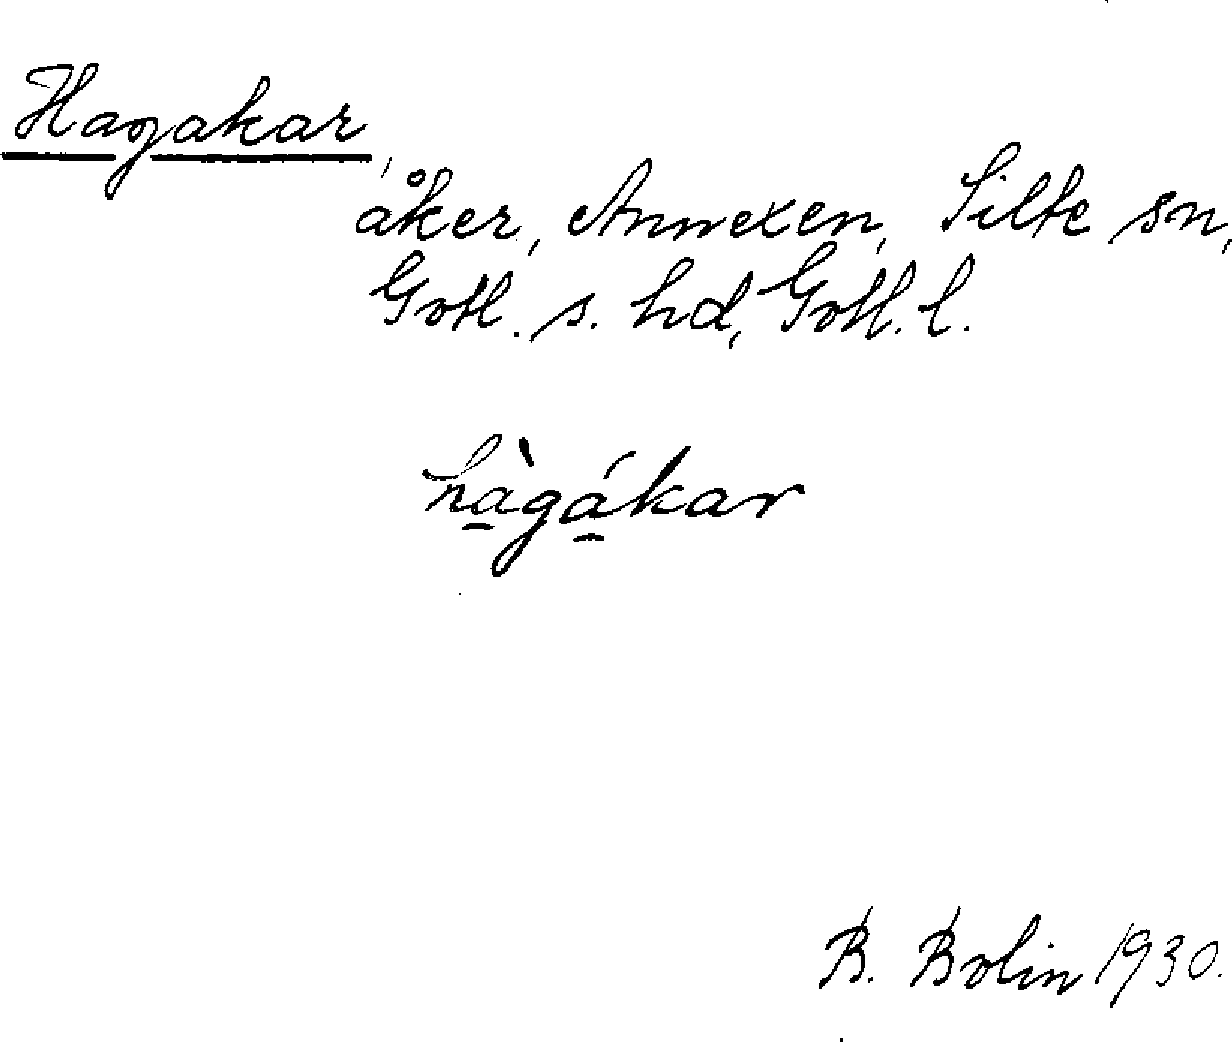 Hagakar,
åker, Annexen, Silte sn,
Gotl. s. hd, Gotl. l.
hà̱gá̱kar
B. Bolin 1930.